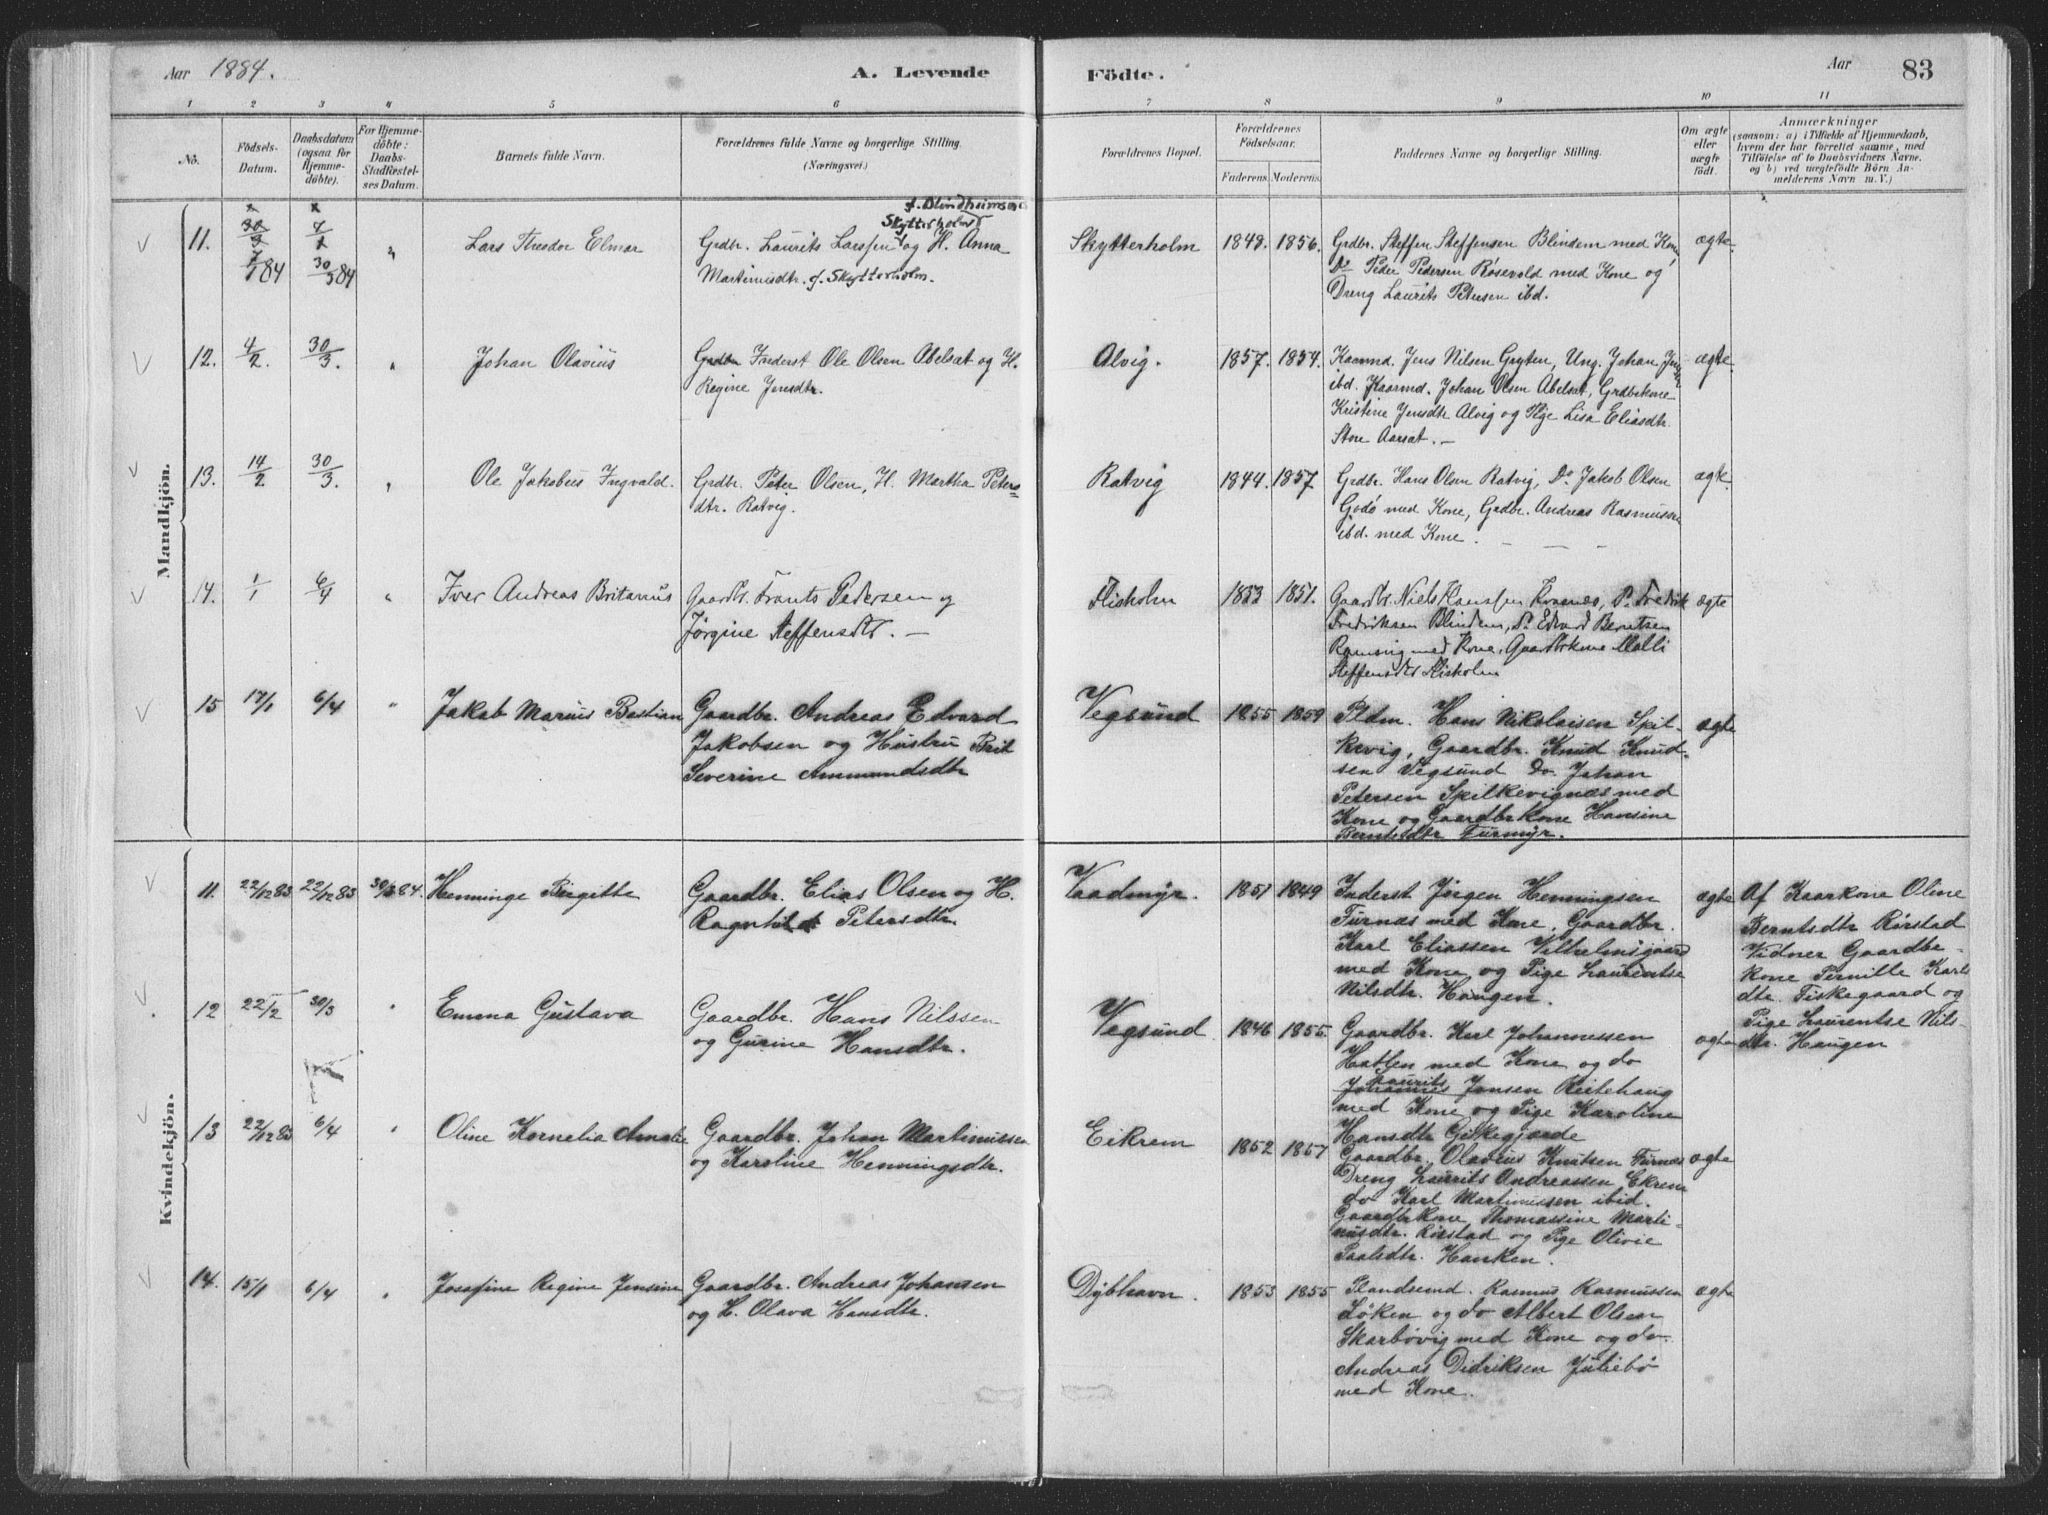 Aar 1884.
A. Levende
Födte.
Aar
83
1 2 3 4 5 6 7 8 9 10 11
No.
Födsels-
Datum.
Daabsdatum
(ogsaa for
Hjemme-
döbte).
For Hjemme-
döbte:
Daabs-
Stadfæstel-
ses Datum.
Barnets fulde Navn.
Forældrenes fulde Navne og borgerlige Stilling.
(Næringsvei.)
Forældrenes Bopæl.
Forældrenes
Födselsaar.
Faderens. Moderens.
Faddernes Navne og borgerlige Stilling.
Om ægte
eller
uægte
födt.
Anmærkninger
(saasom: a) i Tilfælde af Hjemmedaab,
hvem der har forrettet samme, med
Tilföielse af to Daabsvidners Navne.
og b) ved uægtefödte Börn An-
melderens Navn m. V.)
Mandkjön.
11.
7/1 84
30/3 84
"
Lars Theodor Elmar
f. Blindheimsnes
Skytterholm
Grdbr. Laurits Larssen og H. Anna
Martinusdtr. f. Skytterholm.
Skytterholm
1849. 1856.
Grdbr. Steffen Steffensen Blindem med Kone,
Do Peder Pedersen Røsevold med Kone og
Dreng Laurits Petersen ibd.
ægte
12.
4/2.
30/3.
"
Johan Olavius
Grdbr Inderst Ole Olsen Abelsæt og H.
Regine Jensdtr.
Alvig.
1857. 1854.
Kaarmd. Jens Nilsen Gryten, Ung. Johan Jensen
ibd. Kaarmd. Johan Olsen Abelsæt, Grdbrkone
Kristine Jensdtr Alvig og Pige Lisa Eliasdtr.
Store Aarsæt. —
ægte
13.
14/2
30/3.
"
Ole Jakobus Ingvald.
Grdbr. Peter Olsen, H. Martha Peters-
dtr. Ratvig.
Ratvig
1844. 1857
Grdbr. Hans Olsen Ratvig, Do Jakob Olsen
Godø med Kone, Grdbr. Andreas Rasmussen
ibd. med Kone.
ægte.
14.
1/1
6/4
"
Iver Andreas Britanus
Gaardbr. Frants Pedersen og
Jørgine Steffensdtr. —
Flisholm
1853 1851.
Gaardbr Niels Hanssen Kvænes, Do. Fredrik
Fredriksen Blindem, Do Edvard Berntsen
Ramsvig med Kone, Gaardbrkone Malli
Steffensdtr Flisholm
ægte
15
17/1
6/4
"
Jakob Marius Bastian
Gaardbr. Andreas Edvard
Jakobsen og Hustru Brit
Severine Ammundsdtr
Vegsund
1855 1859
Pldm. Hans Nikolaisen Spil-
kevig, Gaardbr. Knud Knud-
sen Vegsund do. Johan
Petersen Spilkevignæs med
Kone og Gaardbrkone Hansine
Berntsdtr Furmyr.
ægte
Kvindekjön.
11.
22/12 83
22/12 83
30/3 84.
Henninge Birgitte
Gaardbr. Elias Olsen og H.
Ragnhild Petersdtr.
Vaadmyr.
1851 1849
Inderst Jørgen Henningsen
Furnæs med Kone, Gaardbr.
Karl Eliassen Vilhelmsgaard
med Kone og Pige Laurentse
Nilsdtr. Haugen.
ægte
Af Kaarkone Oline
Berntsdtr Rørstad
Vidner Gaardbr-
kone Pernille Karls-
dtr. Fiskegaard og
Pige Laurentse Nils-
dtr. Haugen
12
22/2
30/3
"
Emma Gustava
Gaardbr. Hans Nilssen
og Gurine Hansdtr.
Vegsund
1846 1855.
Gaardbr. Karl Johannessen
Hatlen med Kone og do
Laurits
Johannes Jonsen Reitehaug
med Kone og Pige Karoline
Hansdtr Giskegjærde
ægte
13
22/12 83
6/4
"
Oline Kornelia Amalie
Gaardbr. Johan Martinussen
og Karoline Henningsdtr.
Eikrem
1852 1857
Gaardbr. Olavius Knutsen Furnæs
Dreng Laurits Andreassen Ekrem
do Karl Martinussen ibid.
Gaardbrkone Thomassine Marti-
nusdtr. Rørstad og Pige Olivie
Paalsdtr. Hanken.
ægte
14.
15/1
6/4
"
Josefine Regine Jensine
Gaardbr. Andreas Johansen
og H. Olava Hansdtr.
Dybhavn.
1853 1855
Plandsmd. Rasmus Rasmussen
Løken og do Albert Olsen
Skarbøvig med Kone og do
Andreas Didriksen Juliebø
med Kone.
ægte